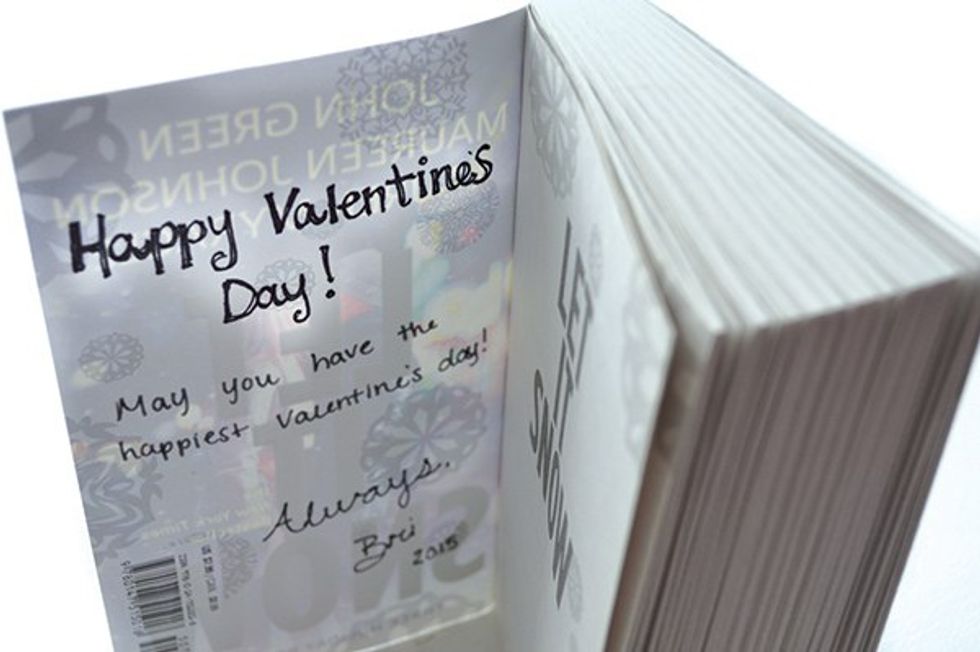 JOHN GREEN
MAUREEN JOHNSON
Happy Valentine's
Day!
May you have the
happiest Valentine's day!
Always,
Bri
2015
LET
IT
SNOW
SNOW